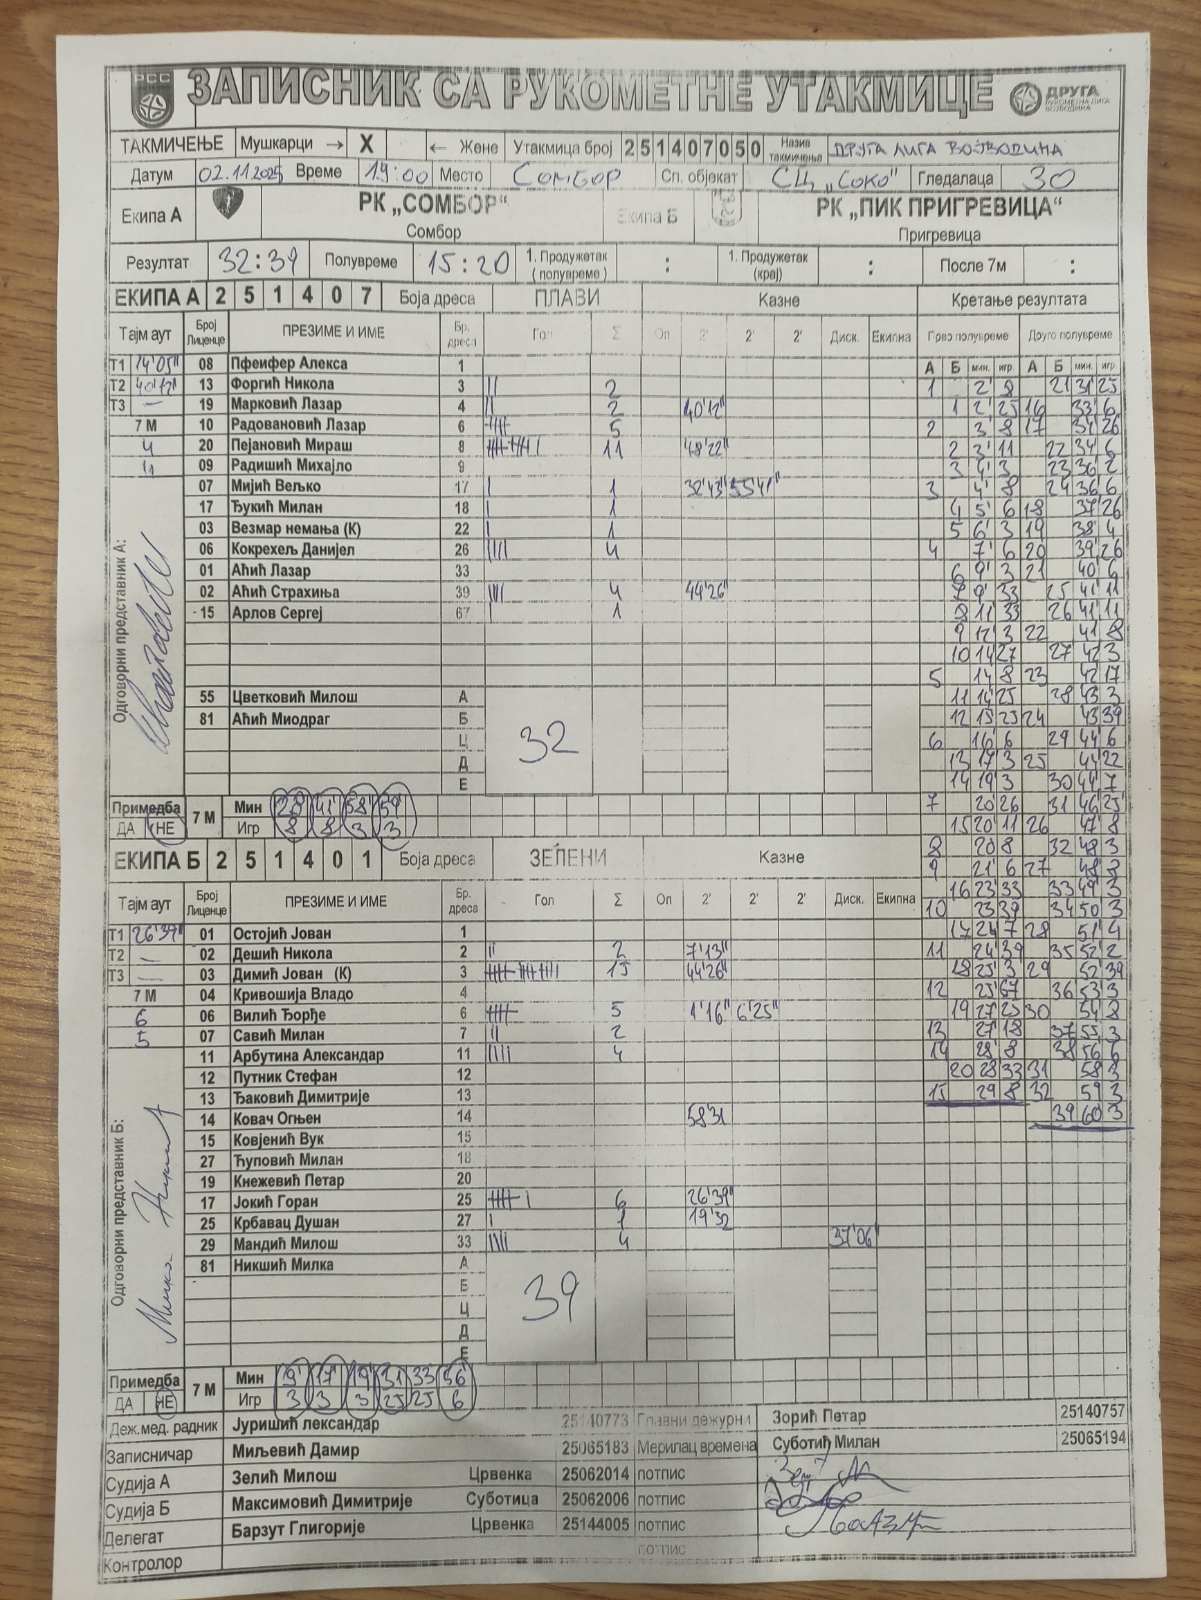 РСС
ЗАПИСНИК СА РУКОМЕТНЕ УТАКМИЦЕ
ДРУГА
ТАКМИЧЕЊЕ Мушкарци → X ← Жене Утакмица број 2 5 1 4 0 7 0 5 0 Назив такмичења ДРУГА ЛИГА ВОЈВОДИНА
Датум 02.11.2025 Време 19:00 Место СОМБОР Сп. објекат СЦ „СОКО" Гледалаца 30
Екипа А РК „СОМБОР“ Сомбор Екипа Б РК „ПИК ПРИГРЕВИЦА“ Пригревица
Резултат 32:39 Полувреме 15:20 1. Продужетак (полувреме) : 1. Продужетак (крај) : После 7м :
ЕКИПА А 2 5 1 4 0 7 Боја дреса ПЛАВИ Казне Кретање резултата
Тајм аут Број Лиценце ПРЕЗИМЕ И ИМЕ Бр. дреса Гол Σ Оп 2' 2' 2' Диск. Екипна Прво полувреме Друго полувреме
А Б мин. игр А Б мин. игр
Т1 14'05" 08 Пфеифер Алекса 1
Т2 40'12" 13 Форгић Никола 3 || 2 1 2' 8 21 31' 25
Т3 — 19 Марковић Лазар 4 || 2 40'12" 1 2' 25 16 33' 6
7 М 10 Радовановић Лазар 6 5 2 3' 8 17 34' 26
4 20 Пејановић Мираш 8 11 48'22" 2 3' 11 22 34' 6
4 09 Радишић Михајло 9 3 4' 3 23 36' 2
07 Мијић Вељко 17 | 1 32'43" 55'41" 3 4' 8 24 36' 6
17 Ђукић Милан 18 | 1 4 5' 6 18 37' 26
03 Везмар немања (К) 22 | 1 5 6' 3 19 38' 4
06 Кокрехељ Данијел 26 |||| 4 4 7' 6 20 39' 26
01 Аћић Лазар 33 6 9' 3 21 40' 6
02 Аћић Страхиња 39 |||| 4 44'26" 7 9' 33 25 41' 11
15 Арлов Сергеј 67 1 8 11' 33 26 41' 11
9 12' 3 22 41' 8
10 14' 27 27 42' 3
5 14' 8 23 42' 17
55 Цветковић Милош А 11 14' 25 28 43' 3
81 Аћић Миодраг Б 32 12 15' 25 24 43' 39
Ц 6 16' 6 29 44' 6
Д 13 17' 3 25 44' 22
Е 14 19' 3 30 44' 7
Примедба 7 М Мин 28' 41' 58' 59' 7 20' 26 31 46' 25
ДА НЕ Игр 8 8 3 3 15 20' 11 26 47' 8
ЕКИПА Б 2 5 1 4 0 1 Боја дреса ЗЕЛЕНИ Казне 8 20' 8 32 48' 3
9 21' 6 27 48' 3
Тајм аут Број Лиценце ПРЕЗИМЕ И ИМЕ Бр. дреса Гол Σ Оп 2' 2' 2' Диск. Екипна 16 23' 33 33 49' 3
10 23' 39 34 50' 3
Т1 26'39" 01 Остојић Јован 1 17 24' 7 28 51' 4
Т2 02 Дешић Никола 2 || 2 7'13" 11 24' 39 35 52' 2
Т3 03 Димић Јован (К) 3 15 44'26" 18 25' 3 29 52' 39
7 М 04 Кривошија Владо 4 12 25' 67 36 53' 3
6 06 Вилић Ђорђе 6 5 1'16" 6'25" 19 27' 25 30 54' 8
5 07 Савић Милан 7 || 2 13 27' 18 37 55' 3
11 Арбутина Александар 11 |||| 4 14 28' 8 38 56' 6
12 Путник Стефан 12 20 28' 33 31 58' 3
13 Ђаковић Димитрије 13 15 29' 8 32 59' 3
14 Ковач Огњен 14 58'31 39 60' 3
15 Ковјенић Вук 15
27 Ћуповић Милан 18
19 Кнежевић Петар 20
17 Јокић Горан 25 6 26'39"
25 Крбавац Душан 27 | 1 19'32
29 Мандић Милош 33 |||| 4 37'06"
81 Никшић Милка А
Б 39
Ц
Д
Е
Одговорни представник А:
Одговорни представник Б:
Примедба 7 М Мин 9' 17' 19' 31' 33' 56'
ДА НЕ Игр 3 3 3 25 25 6
Деж.мед. радник Јуришић лександар 25140773 Главни дежурни Зорић Петар 25140757
Записничар Миљевић Дамир 25065183 Мерилац времена Суботић Милан 25065194
Судија А Зелић Милош Црвенка 25062014 потпис
Судија Б Максимовић Димитрије Суботица 25062006 потпис
Делегат Барзут Глигорије Црвенка 25144005 потпис
Контролор потпис